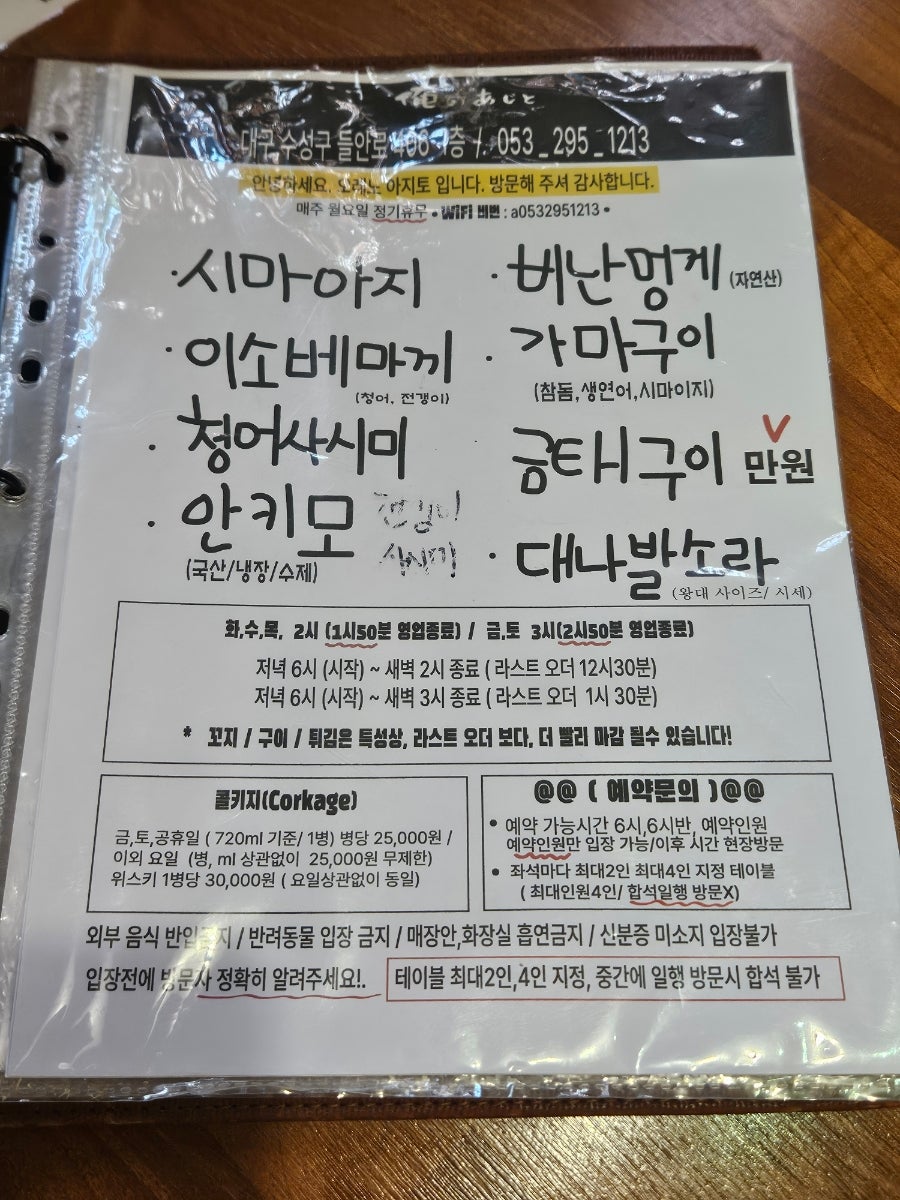 俺のあじと
대구 수성구 들안로 406 1층 / 053_295_1213
안녕하세요. 오레노 아지토 입니다. 방문해 주셔 감사합니다.
매주 월요일 정기휴무 • WiFi 비번 : a0532951213 •
·시마아지
·비난멍게 (자연산)
·이소베마끼
(청어, 전갱이)
·가마구이
(참돔,생연어,시마이지)
·청어사시미
금태구이 만원
·안키모
(국산/냉장/수제)
전갱이
사시미
·대나발소라
(왕대 사이즈/ 시세)
화,수,목, 2시 (1시50분 영업종료) / 금,토 3시(2시50분 영업종료)
저녁 6시 (시작) ~ 새벽 2시 종료 ( 라스트 오더 12시30분)
저녁 6시 (시작) ~ 새벽 3시 종료 ( 라스트 오더 1시 30분)
* 꼬지 / 구이 / 튀김은 특성상, 라스트 오더 보다, 더 빨리 마감 될수 있습니다!
콜키지(Corkage)
금,토,공휴일 ( 720ml 기준/ 1병) 병당 25,000원 /
이외 요일 (병, ml 상관없이 25,000원 무제한)
위스키 1병당 30,000원 ( 요일상관없이 동일)
@@ ( 예약문의 )@@
• 예약 가능시간 6시,6시반, 예약인원
예약인원만 입장 가능/이후 시간 현장방문
• 좌석마다 최대2인 최대4인 지정 테이블
( 최대인원4인/ 합석일행 방문X)
외부 음식 반입금지 / 반려동물 입장 금지 / 매장안,화장실 흡연금지 / 신분증 미소지 입장불가
입장전에 방문자 정확히 알려주세요!.
테이블 최대2인,4인 지정, 중간에 일행 방문시 합석 불가